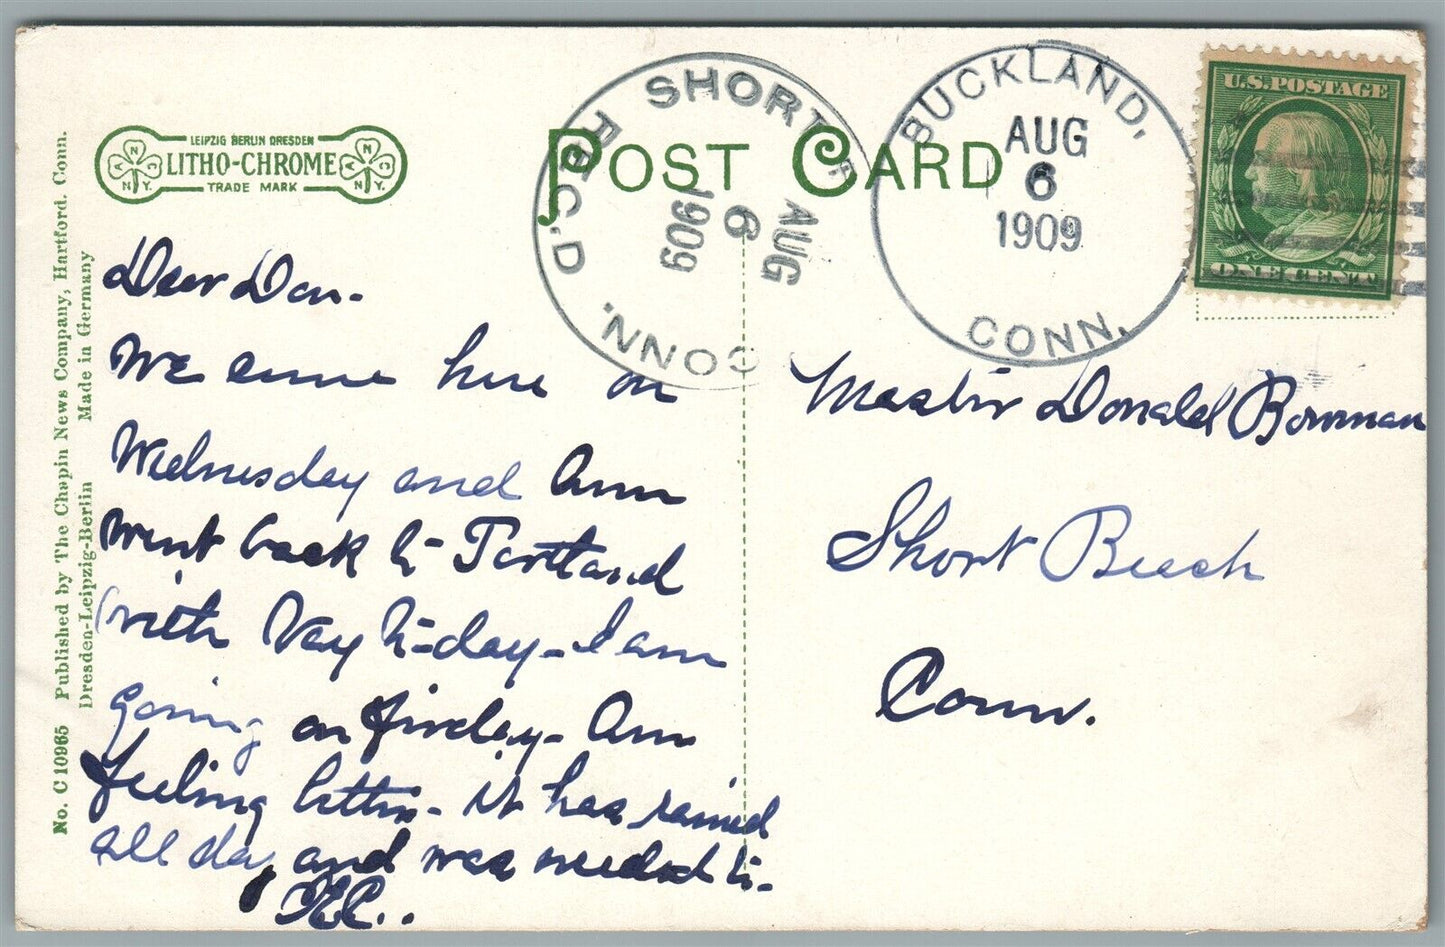 LEIPZIG BERLIN DRESDEN
LITHO-CHROME
TRADE MARK
A N C N.Y.
A N C N.Y.
POST CARD
SHORT B
CONN.
REC'D
AUG
6
1909
BUCKLAND,
AUG
6
1909
CONN.
U.S. POSTAGE
ONE CENT
No. C 10965 Published by The Chapin News Company, Hartford. Conn.
Dresden-Leipzig-Berlin Made in Germany
Dear Don-
We came here on
Wednesday and Ann
went back to Portland
with Kay to-day- I am
going on Friday- Am
feeling better- it has rained
all day and was needed to-
Master Donald Bowman
Short Beach
Conn.